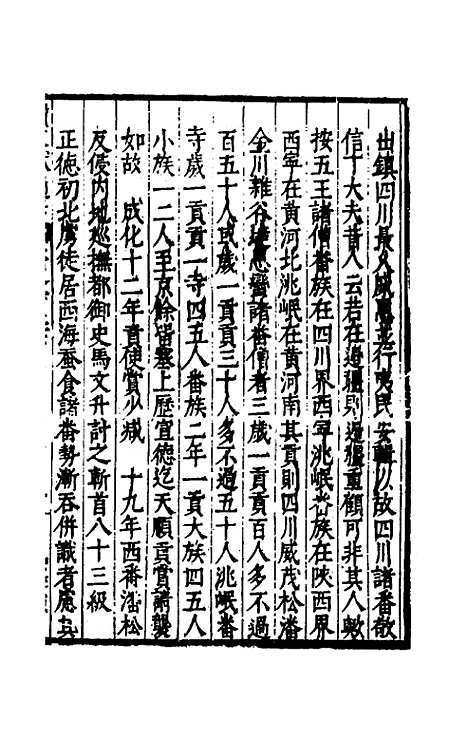 出鎮四川長久威惠並行夷民安輯以故四川諸番敬
信士大夫昔人云若在邊疆則邊疆重顧可非其人歟
按五王諸僧番族在四川界西寧洮岷番族在陝西界
西寧在黃河北洮岷在黃河南其貢則四川威茂松潘
金川雜谷達思蠻諸番僧者三歲一貢貢百人多不過
百五十人或歲一貢貢三十人多不過五十人洮岷番
寺歲一貢貢一寺四五人番族二年一貢大族四五人
小族一二人至京餘留塞上歷宣德迄天順貢賞諸襲
如故 成化十二年貢使賞少減 十九年西番潘松
反侵內地巡撫都御史馬文升計之斬首八十三級
正德初北虜徒居西海蚕食諸番勢漸吞併識者慮